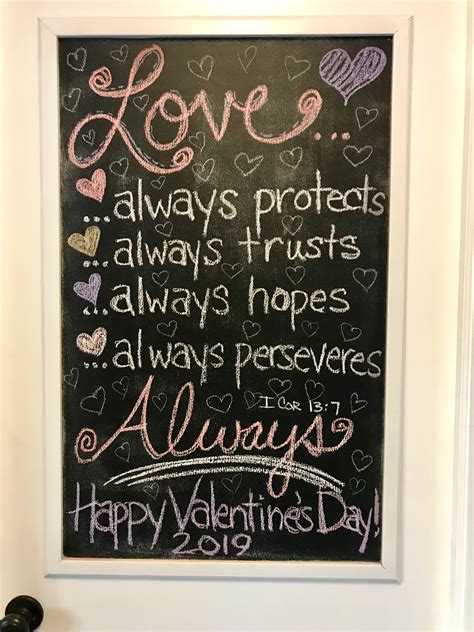 Love...
...always protects
...always trusts
...always hopes
...always perseveres
I Cor 13:7
Always
Happy Valentine's Day!
2019